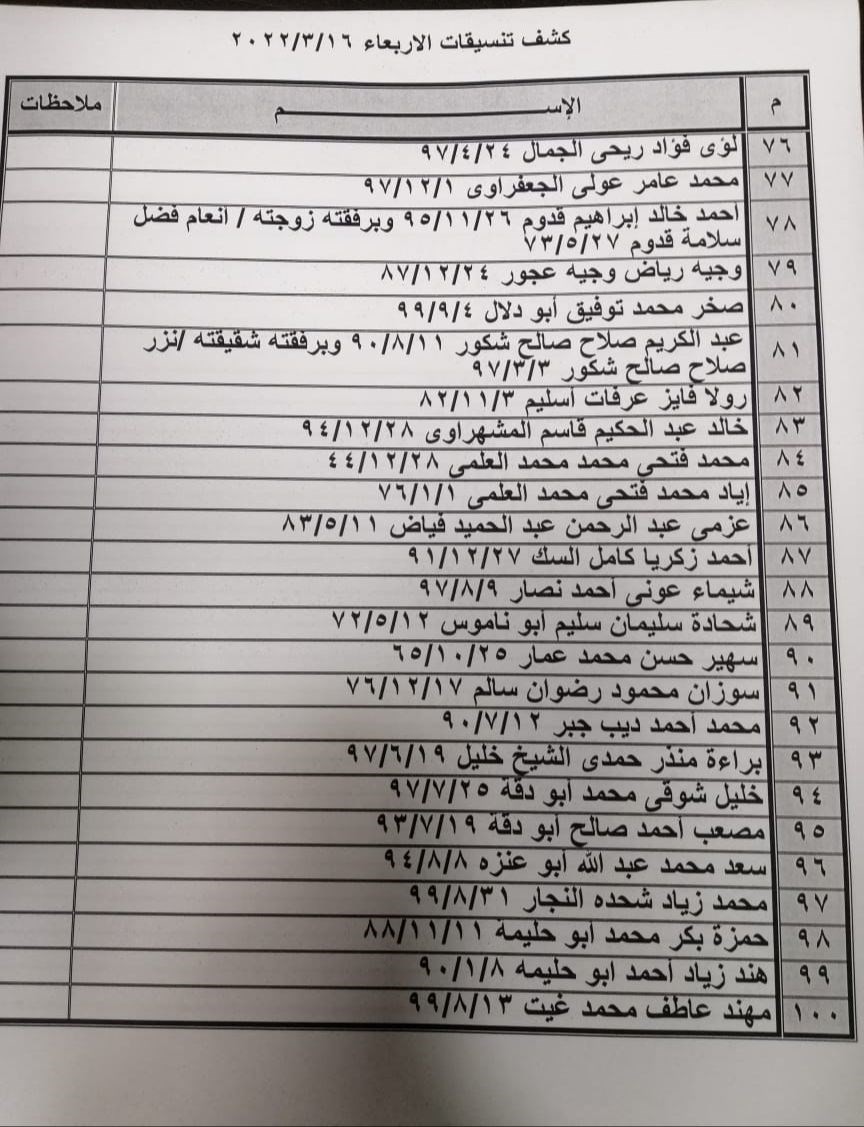 كشف تنسيقات الاربعاء ٢٠٢٢/٣/١٦
م الإســـــــــم ملاحظات
٧٦ لؤى فؤاد ريحى الجمال ٩٧/٤/٢٤
٧٧ محمد عامر عولى الجعفراوى ٩٧/١٢/١
٧٨ احمد خالد إبراهيم قدوم ٩٥/١١/٢٦ وبرفقته زوجته / انعام فضل
سلامة قدوم ٧٣/٥/٢٧
٧٩ وجيه رياض وجيه عجور ٨٧/١٢/٢٤
٨٠ صخر محمد توفيق أبو دلال ٩٩/٩/٤
٨١ عبد الكريم صلاح صالح شكور ٩٠/٨/١١ وبرفقته شقيقته /نزر
صلاح صالح شكور ٩٧/٣/٣
٨٢ رولا فايز عرفات اسليم ٨٢/١١/٣
٨٣ خالد عبد الحكيم قاسم المشهراوى ٩٤/١٢/٢٨
٨٤ محمد فتحي محمد محمد العلمى ٤٤/١٢/٢٨
٨٥ إياد محمد فتحى محمد العلمى ٧٦/١/١
٨٦ عزمى عبد الرحمن عبد الحميد فياض ٨٣/٥/١١
٨٧ أحمد زكريا كامل السك ٩١/١٢/٢٧
٨٨ شيماء عونى احمد نصار ٩٧/٨/٩
٨٩ شحادة سليمان سليم أبو ناموس ٧٢/٥/١٢
٩٠ سهير حسن محمد عمار ٦٥/١٠/٢٥
٩١ سوزان محمود رضوان سالم ٧٦/١٢/١٧
٩٢ محمد أحمد ديب جبر ٩٠/٧/١٢
٩٣ براءة منذر حمدى الشيخ خليل ٩٧/٦/١٩
٩٤ خليل شوقى محمد أبو دقة ٩٧/٧/٢٥
٩٥ مصعب أحمد صالح أبو دقة ٩٣/٧/١٩
٩٦ سعد محمد عبد الله أبو عنزه ٩٤/٨/٨
٩٧ محمد زياد شحده النجار ٩٩/٨/٣١
٩٨ حمزة بكر محمد ابو حليمة ٨٨/١١/١١
٩٩ هند زياد احمد ابو حليمه ٩٠/١/٨
١٠٠ مهند عاطف محمد غيت ٩٩/٨/١٣